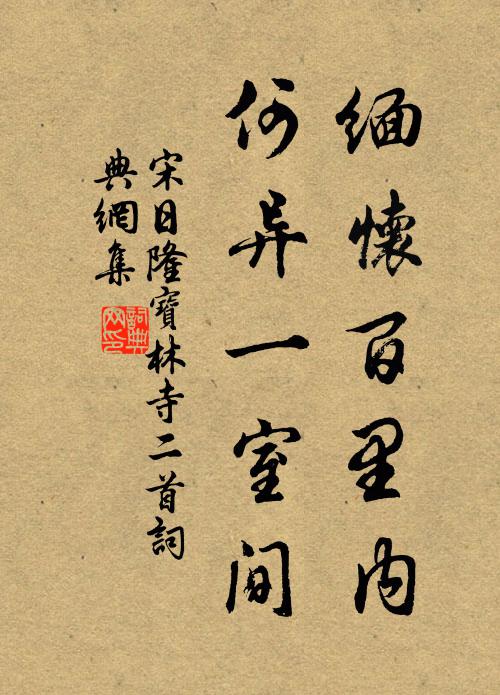 缅懷百里内
何异一室间
宋日隆寶林寺二首詞
典網集
詞典网印